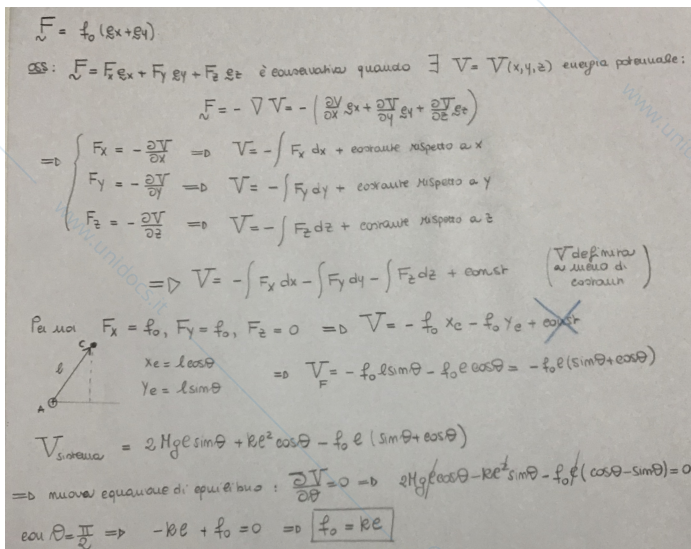 F = f₀ (ex+ey)
oss: F = Fx ex + Fy ey + Fz ez è conservativa quando ∃ V = V(x,y,z) energia potenziale:
F = - ∇V = - (∂V/∂x ex + ∂V/∂y ey + ∂V/∂z ez)
=D { Fx = - ∂V/∂x =D V = - ∫ Fx dx + costante rispetto a x
Fy = - ∂V/∂y =D V = - ∫ Fy dy + costante rispetto a y
Fz = - ∂V/∂z =D V = - ∫ Fz dz + costante rispetto a z
=D V = - ∫ Fx dx - ∫ Fy dy - ∫ Fz dz + const (V definita a meno di costanti)
Per noi Fx = f₀, Fy = f₀, Fz = 0 =D V = - f₀ xc - f₀ yc + const
C
l
A
xc = l cosθ
yc = l sinθ
=D V_F = - f₀ l sinθ - f₀ l cosθ = - f₀ l (sinθ + cosθ)
V sistema = 2Mgl sinθ + kl² cosθ - f₀ l (sinθ + cosθ)
=D nuova equazione di equilibrio : ∂V/∂θ = 0 =D 2Mgl cosθ - kl² sinθ - f₀ l (cosθ - sinθ) = 0
con θ = π/2 => - kl + f₀ = 0 =D f₀ = kl
www.unidocs.it